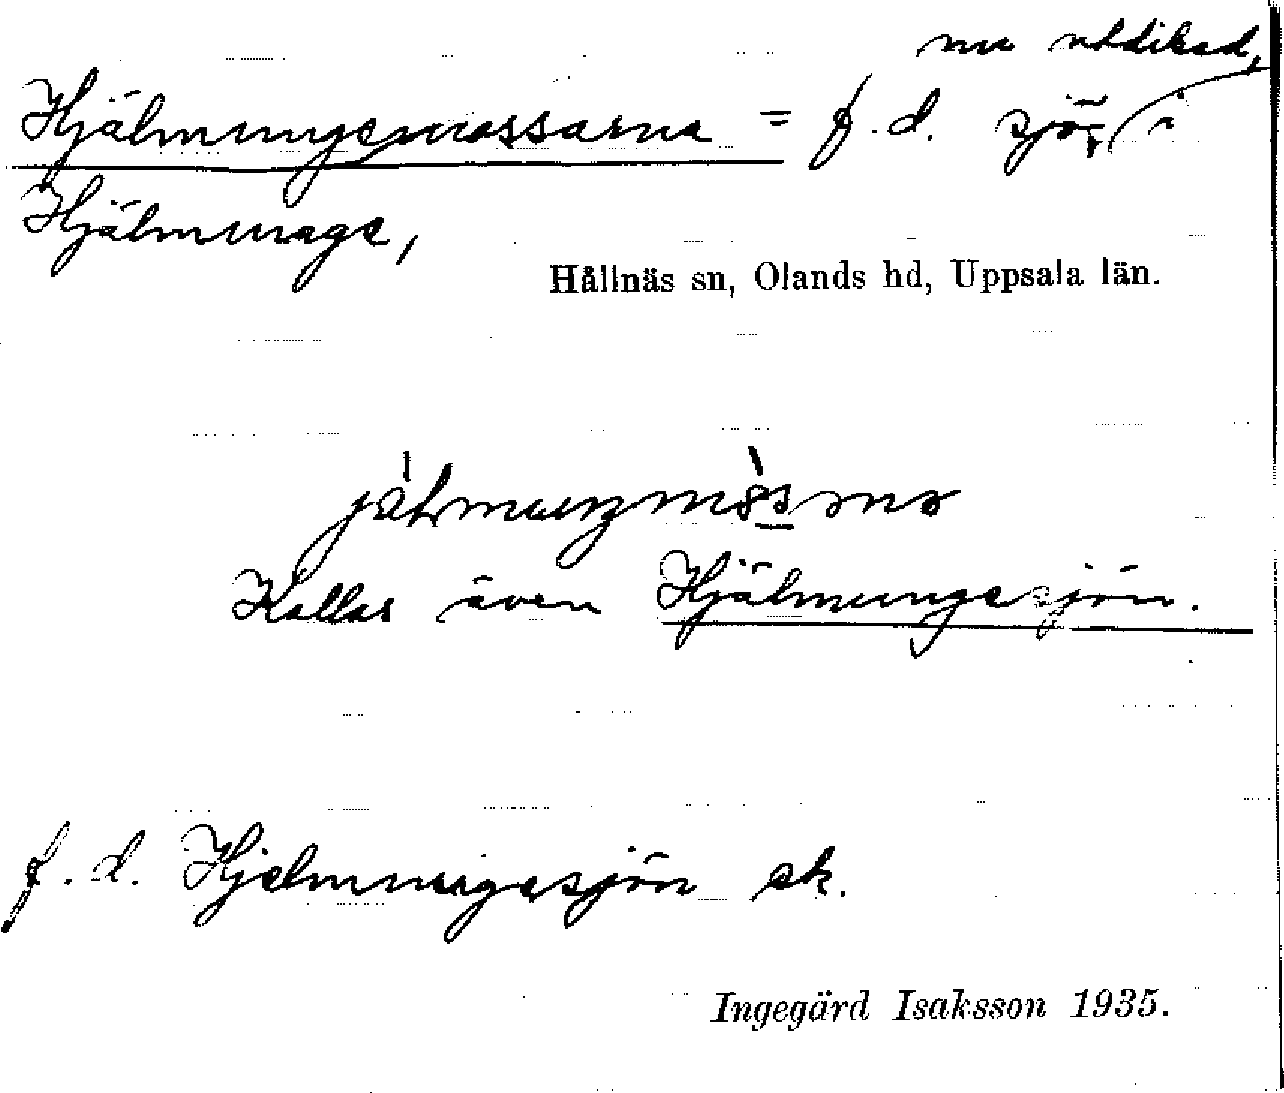 nu utdikad,
Hjälmungemossarna = f.d. sjö, i
Hjälmunge,
Hållnäs sn, Olands hd, Uppsala län.
Kallas även Hjälmungesjön.
f.d. Hjelmungesjön ek.
Ingegärd Isaksson 1935.